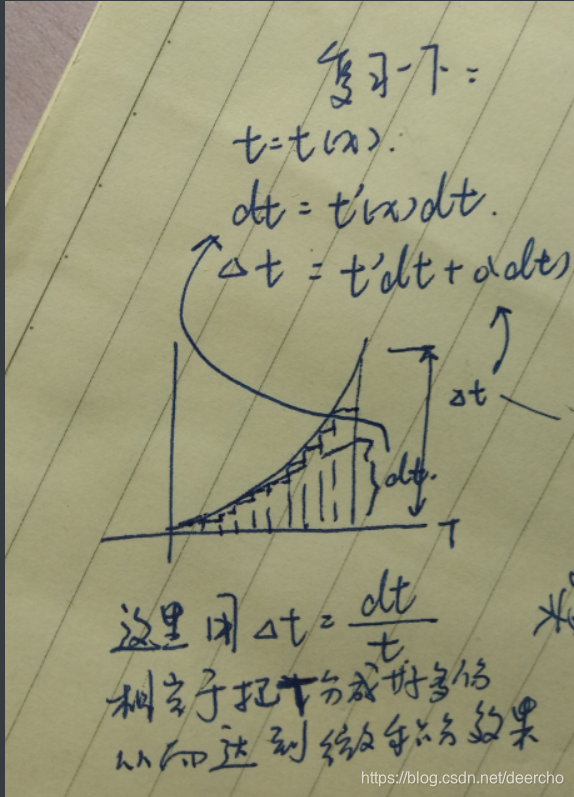 复习一下:
t=t(x).
dt = t'(x)dt.
Δt = t'dt + o(dt)
Δt
dt.
T
这里用 Δt = dt/t
相当于把T分成好多份
从而达到微分的效果
https://blog.csdn.net/deercho